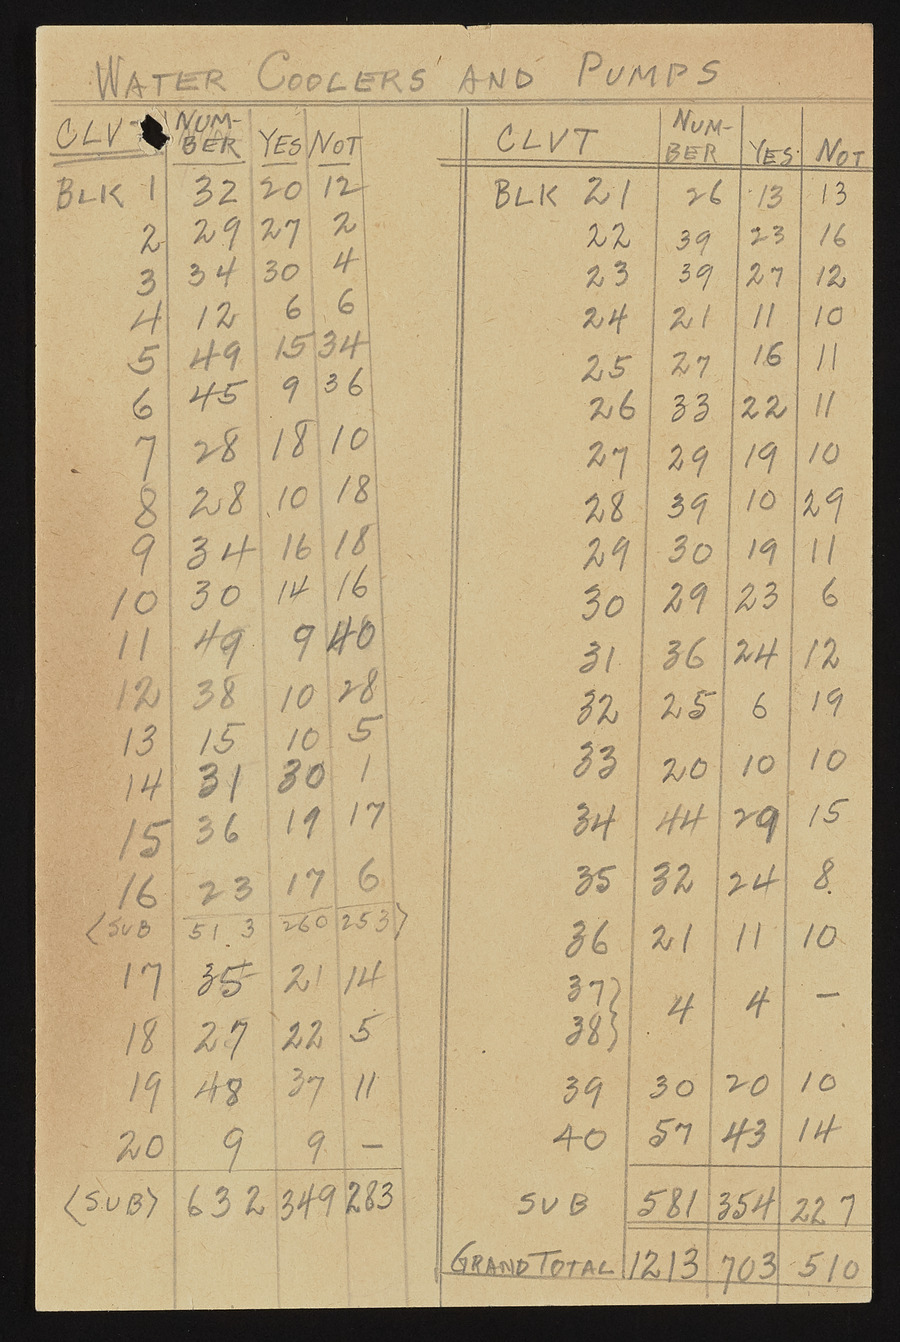 WATER COOLERS AND PUMPS
CLVT NUM-BER YES NOT
BLK 1 32 20 12
2 29 27 2
3 34 30 4
4 12 6 6
5 49 15 34
6 45 9 36
7 28 18 10
8 28 10 18
9 34 16 18
10 30 14 16
11 49 9 40
12 38 10 28
13 15 10 5
14 31 30 1
15 36 19 17
16 23 17 6
(SUB 513 260 253)
17 35 21 14
18 27 22 5
19 48 37 11
20 9 9 —
(SUB) 632 349 283
CLVT NUM-BER YES NOT
BLK 21 26 13 13
22 39 23 16
23 39 27 12
24 21 11 10
25 27 16 11
26 33 22 11
27 29 19 10
28 39 10 29
29 30 19 11
30 29 23 6
31 36 24 12
32 25 6 19
33 20 10 10
34 44 29 15
35 32 24 8
36 21 11 10
37}
38} 4 4 —
39 30 20 10
40 57 43 14
SUB 581 354 227
GRAND TOTAL 1213 703 510